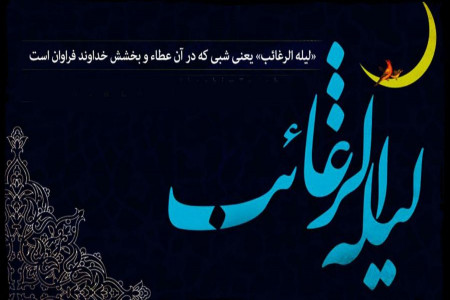 «لیله الرغائب» یعنی شبی که در آن عطاء و بخشش خداوند فراوان است
لیله الرغائب